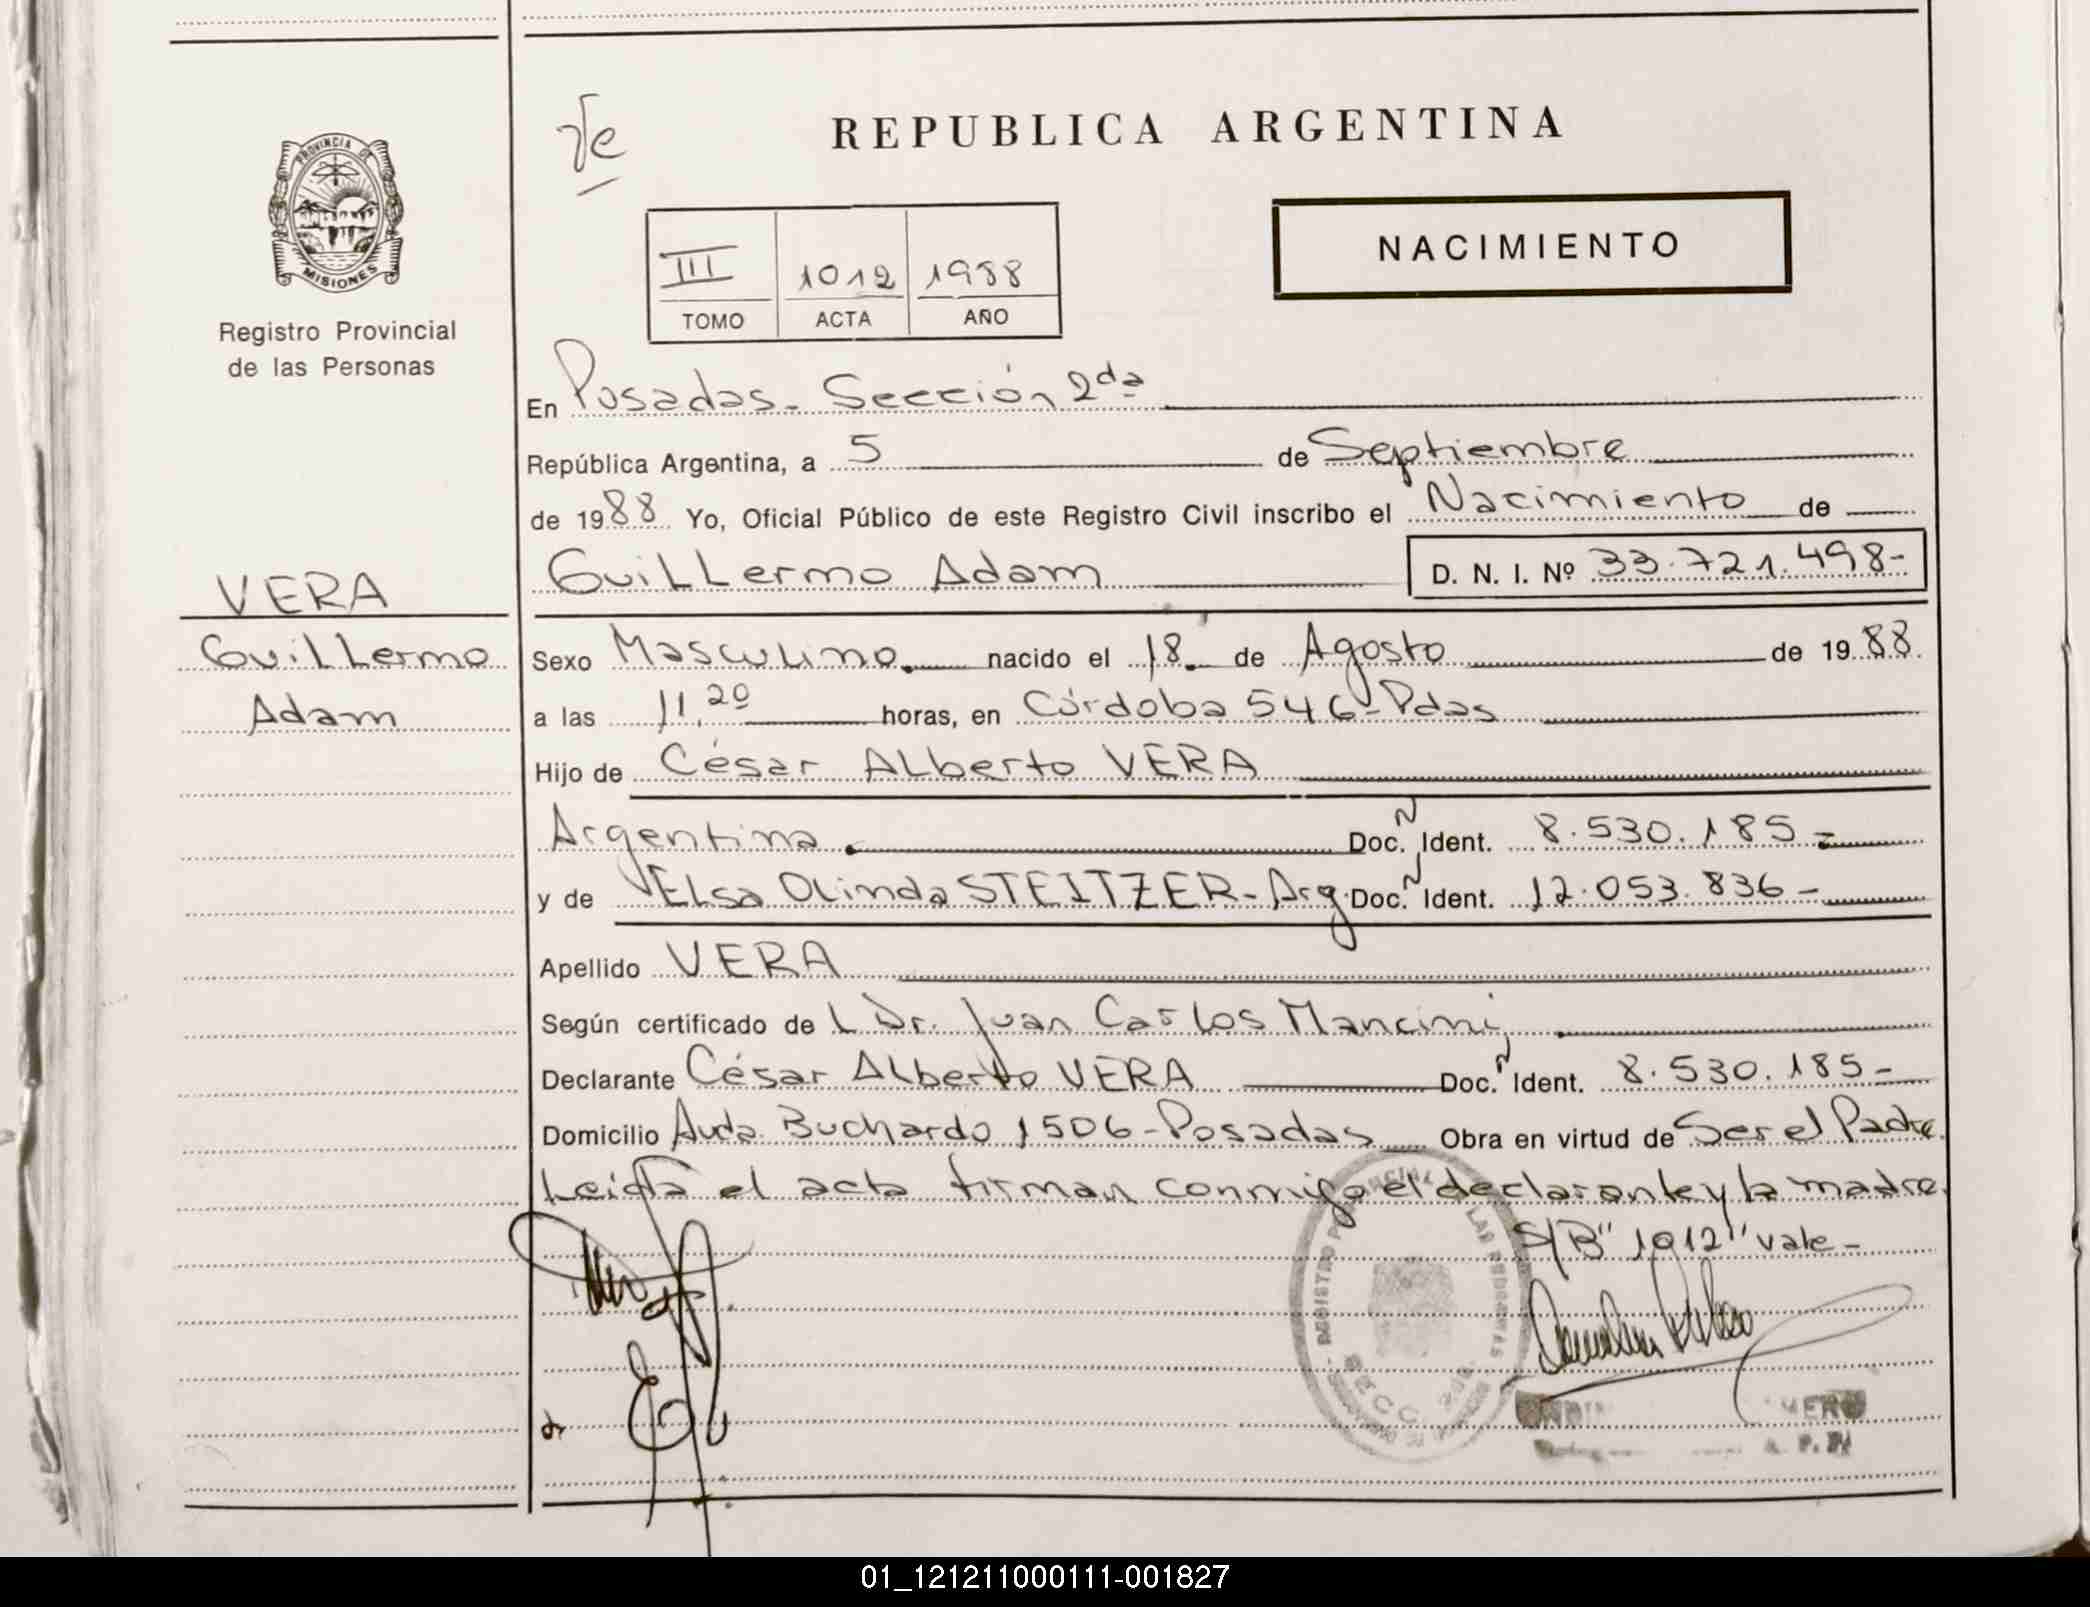 Te
REPUBLICA ARGENTINA
PROVINCIA DE
MISIONES
NACIMIENTO
III 1012 1988
TOMO ACTA AÑO
Registro Provincial
de las Personas
En Posadas - Sección 2da
República Argentina, a 5 de Septiembre
de 1988 Yo, Oficial Público de este Registro Civil inscribo el Nacimiento de
Guillermo Adam D. N. I. Nº 33.721.498-
VERA
Guillermo
Adam
Sexo Masculino. nacido el 18. de Agosto de 1988.
a las 11,20 horas, en Córdoba 546 - Pdas
Hijo de César Alberto VERA
Argentina. Doc. N Ident. 8.530.185 -
y de Elsa Olinda STEITZER - Arg. Doc. N Ident. 12.053.836 -
Apellido VERA
Según certificado de L Dr. Juan Carlos Mancini
Declarante César Alberto VERA Doc. N Ident. 8.530.185 -
Domicilio Avda. Buchardo 1506 - Posadas Obra en virtud de Ser el Padre.
Leída el acta firman conmigo el declarante y la madre.
S/B "1012" vale -
REGISTRO PROVINCIAL DE LAS PERSONAS
SECC. 2da.
01_121211000111-001827